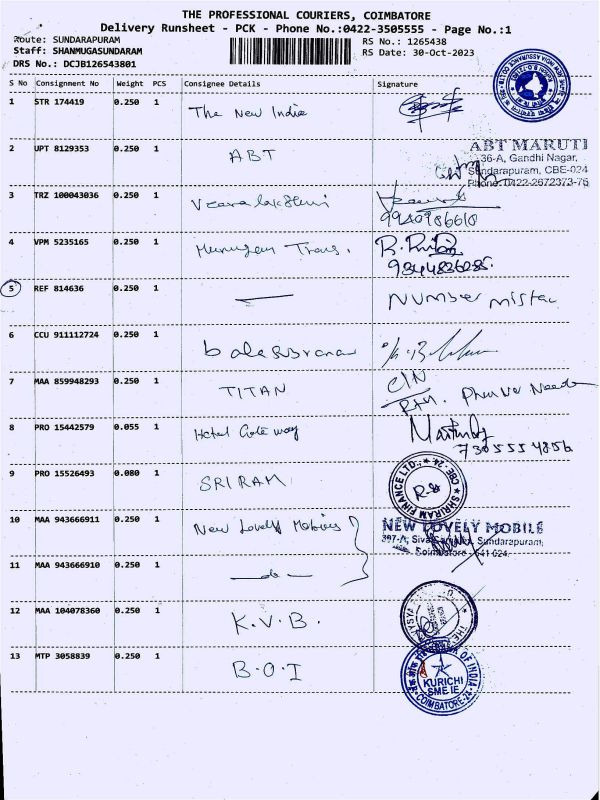 THE PROFESSIONAL COURIERS, COIMBATORE
Delivery Runsheet - PCK - Phone No.:0422-3505555 - Page No.:1
Route: SUNDARAPURAM
RS No.: 1265438
Staff: SHANMUGASUNDARAM
RS Date: 30-Oct-2023
DRS No.: DCJB126543801
S No Consignment No Weight PCS Consignee Details Signature
1 STR 174419 0.250 1 The New India
2 UPT 8129353 0.250 1 ABT
ABT MARUTI
36-A, Gandhi Nagar,
Sundarapuram, CBE-024
Phone: 0422-2672373-76
3 TRZ 100043036 0.250 1 Veeralakshmi
9940986618
4 VPM 5235165 0.250 1 Murugan Trans.
5 REF 814636 0.250 1 — Number mistac
6 CCU 911112724 0.250 1
7 MAA 859948293 0.250 1 TITAN
8 PRO 15442579 0.055 1 Hotel Gate way
7305554856
9 PRO 15526493 0.080 1 SRIRAM
SHRIRAM FINANCE LTD., CBE-24
10 MAA 943666911 0.250 1 New Lovely Mobiles
NEW LOVELY MOBILE
Sundarapuram,
Coimbatore - 641 024.
11 MAA 943666910 0.250 1 —do—
12 MAA 104078360 0.250 1 K.V.B.
13 MTP 3058839 0.250 1 B.O.I
BANK OF INDIA
KURICHI
SME IE
COIMBATORE-24